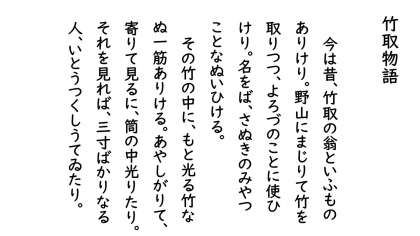 竹取物語
今は昔、竹取の翁といふもの
ありけり。野山にまじりて竹を
取りつつ、よろづのことに使ひ
けり。名をば、さぬきのみやつ
ことなぬいひける。
その竹の中に、もと光る竹な
ぬ一筋ありける。あやしがりて、
寄りて見るに、筒の中光りたり。
それを見れば、三寸ばかりなる
人、いとうつくしうてゐたり。